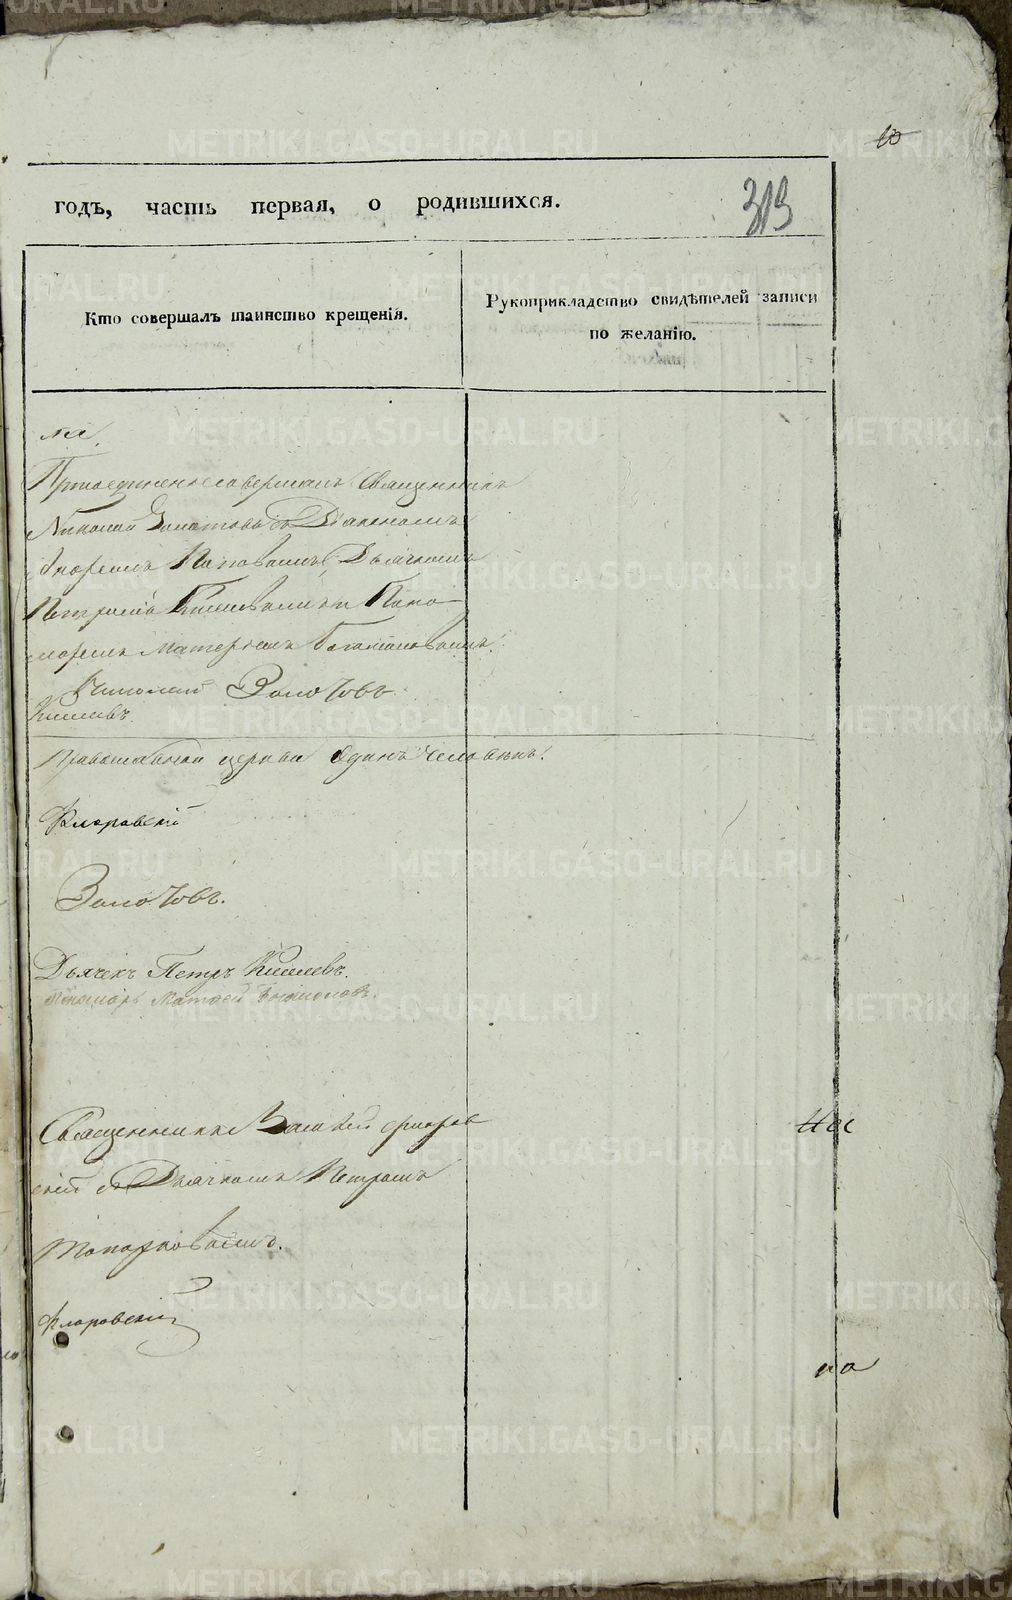 10
годъ, часть первая, о родившихся.
319
Кто совершалъ таинство крещенія.
Рукоприкладство свидѣтелей записи
по желанію.
на.
Присоединеніе совершалъ Священникъ
Николай Золотовъ съ Діакономъ
Поповымъ, Дьячкомъ
Петромъ Киселевымъ и Поно
маремъ Матѳеемъ
Николай Золотовъ.
Киселевъ.
Православной церкви одинъ человѣкъ.
Флоровскій
Золотовъ.
Дьячекъ Петръ Киселевъ.
Пономарь Матѳей
Священникъ Василій Флоров
скій съ Дьячкомъ Петромъ
Топорковымъ.
Флоровскій
на
METRIKI.GASO-URAL.RU